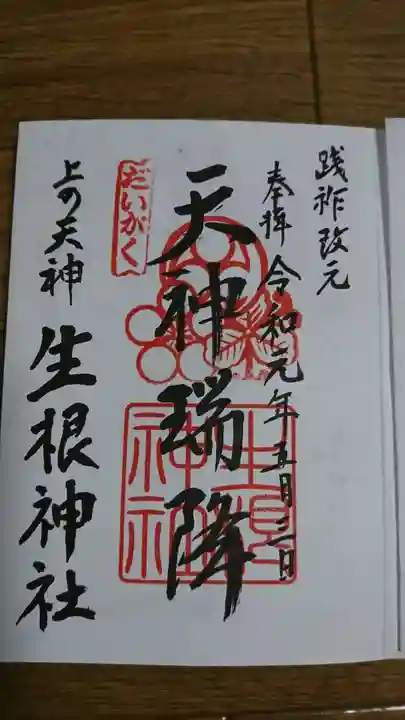 践祚改元
奉拝 令和元年五月三日
天神瑞降
だいがく
上の天神 生根神社
生根神社